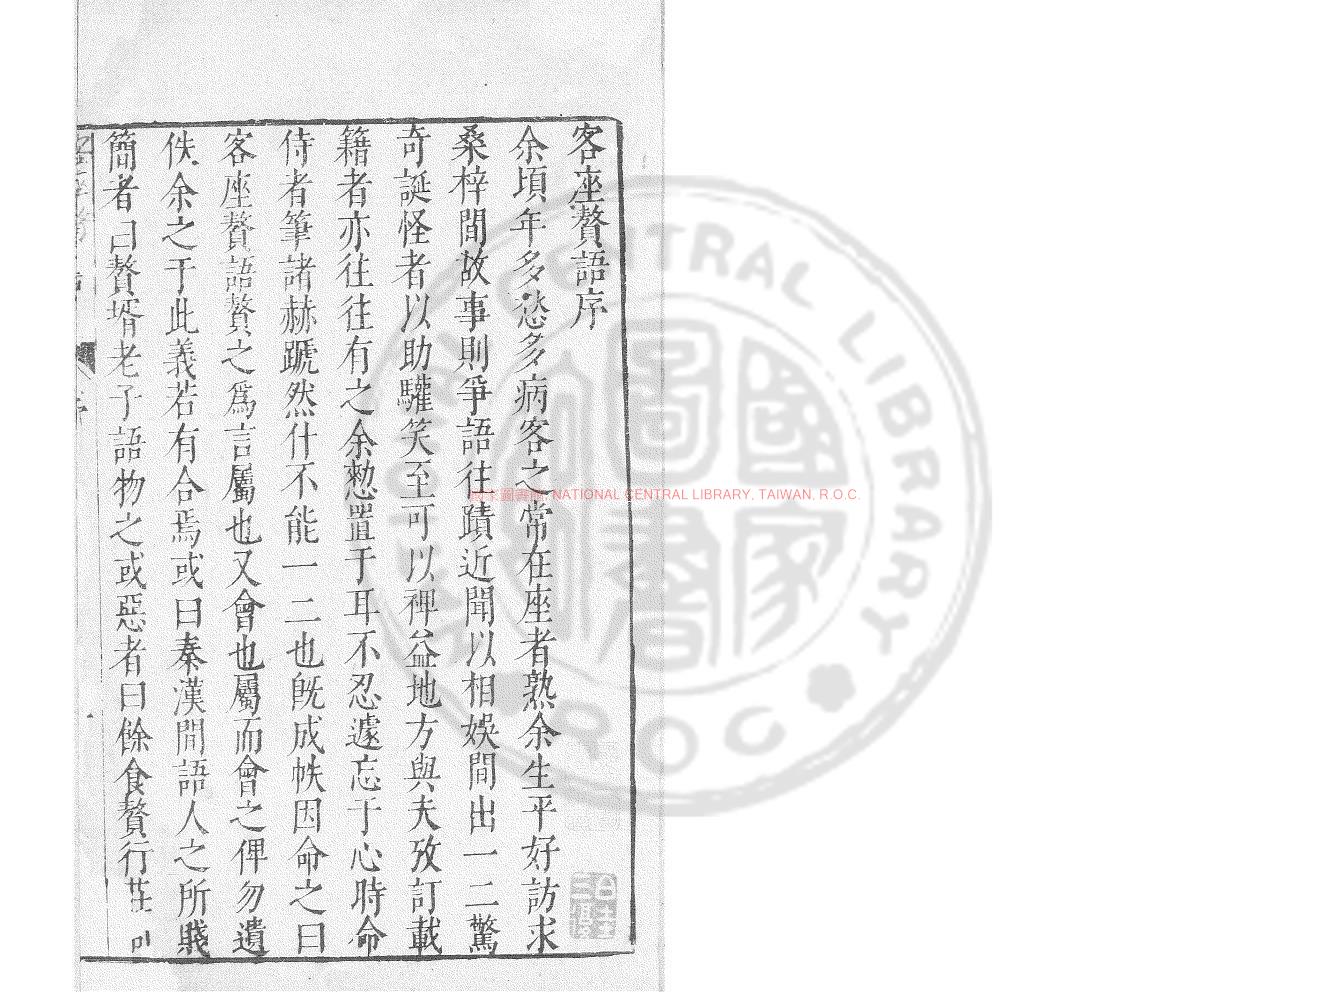 客座贅語序
余頃年多愁多病客之常在座者熟余生平好訪求
桑梓間故事則爭語往蹟近聞以相娛間出一二驚
奇誕怪者以助驩笑至可以裨益地方與夫攷訂載
籍者亦往往有之余愸置于耳不忍遽忘于心時命
侍者筆諸赫蹏然什不能一二也旣成帙因命之曰
客座贅語贅之爲言屬也又會也屬而會之俾勿遺
佚余之于此義若有合焉或曰秦漢間語人之所賤
簡者曰贅壻老子語物之或惡者曰餘食贅行莊
NATIONAL CENTRAL LIBRARY, TAIWAN, R.O.C.
CENTRAL LIBRARY
ROC
國家圖書館